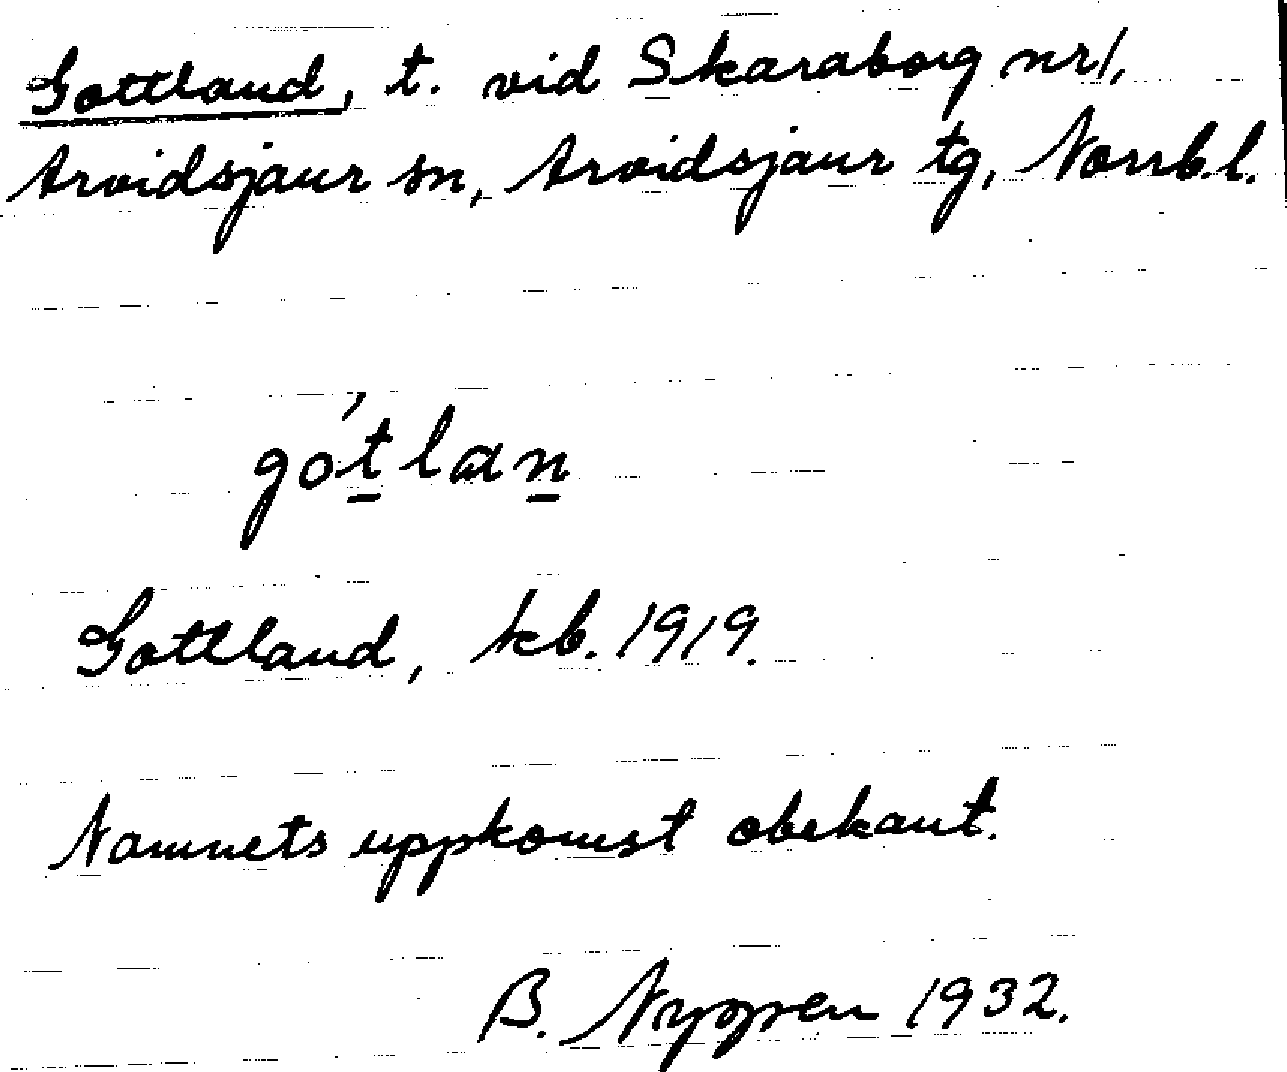 Gottland, t. vid Skaraborg nr 1,
Arvidsjaur sn, Arvidsjaur tg, Norrb.l.
go´t̲lan̲
Gottland, kb. 1919.
Namnets uppkomst obekant.
B. Nygren 1932.